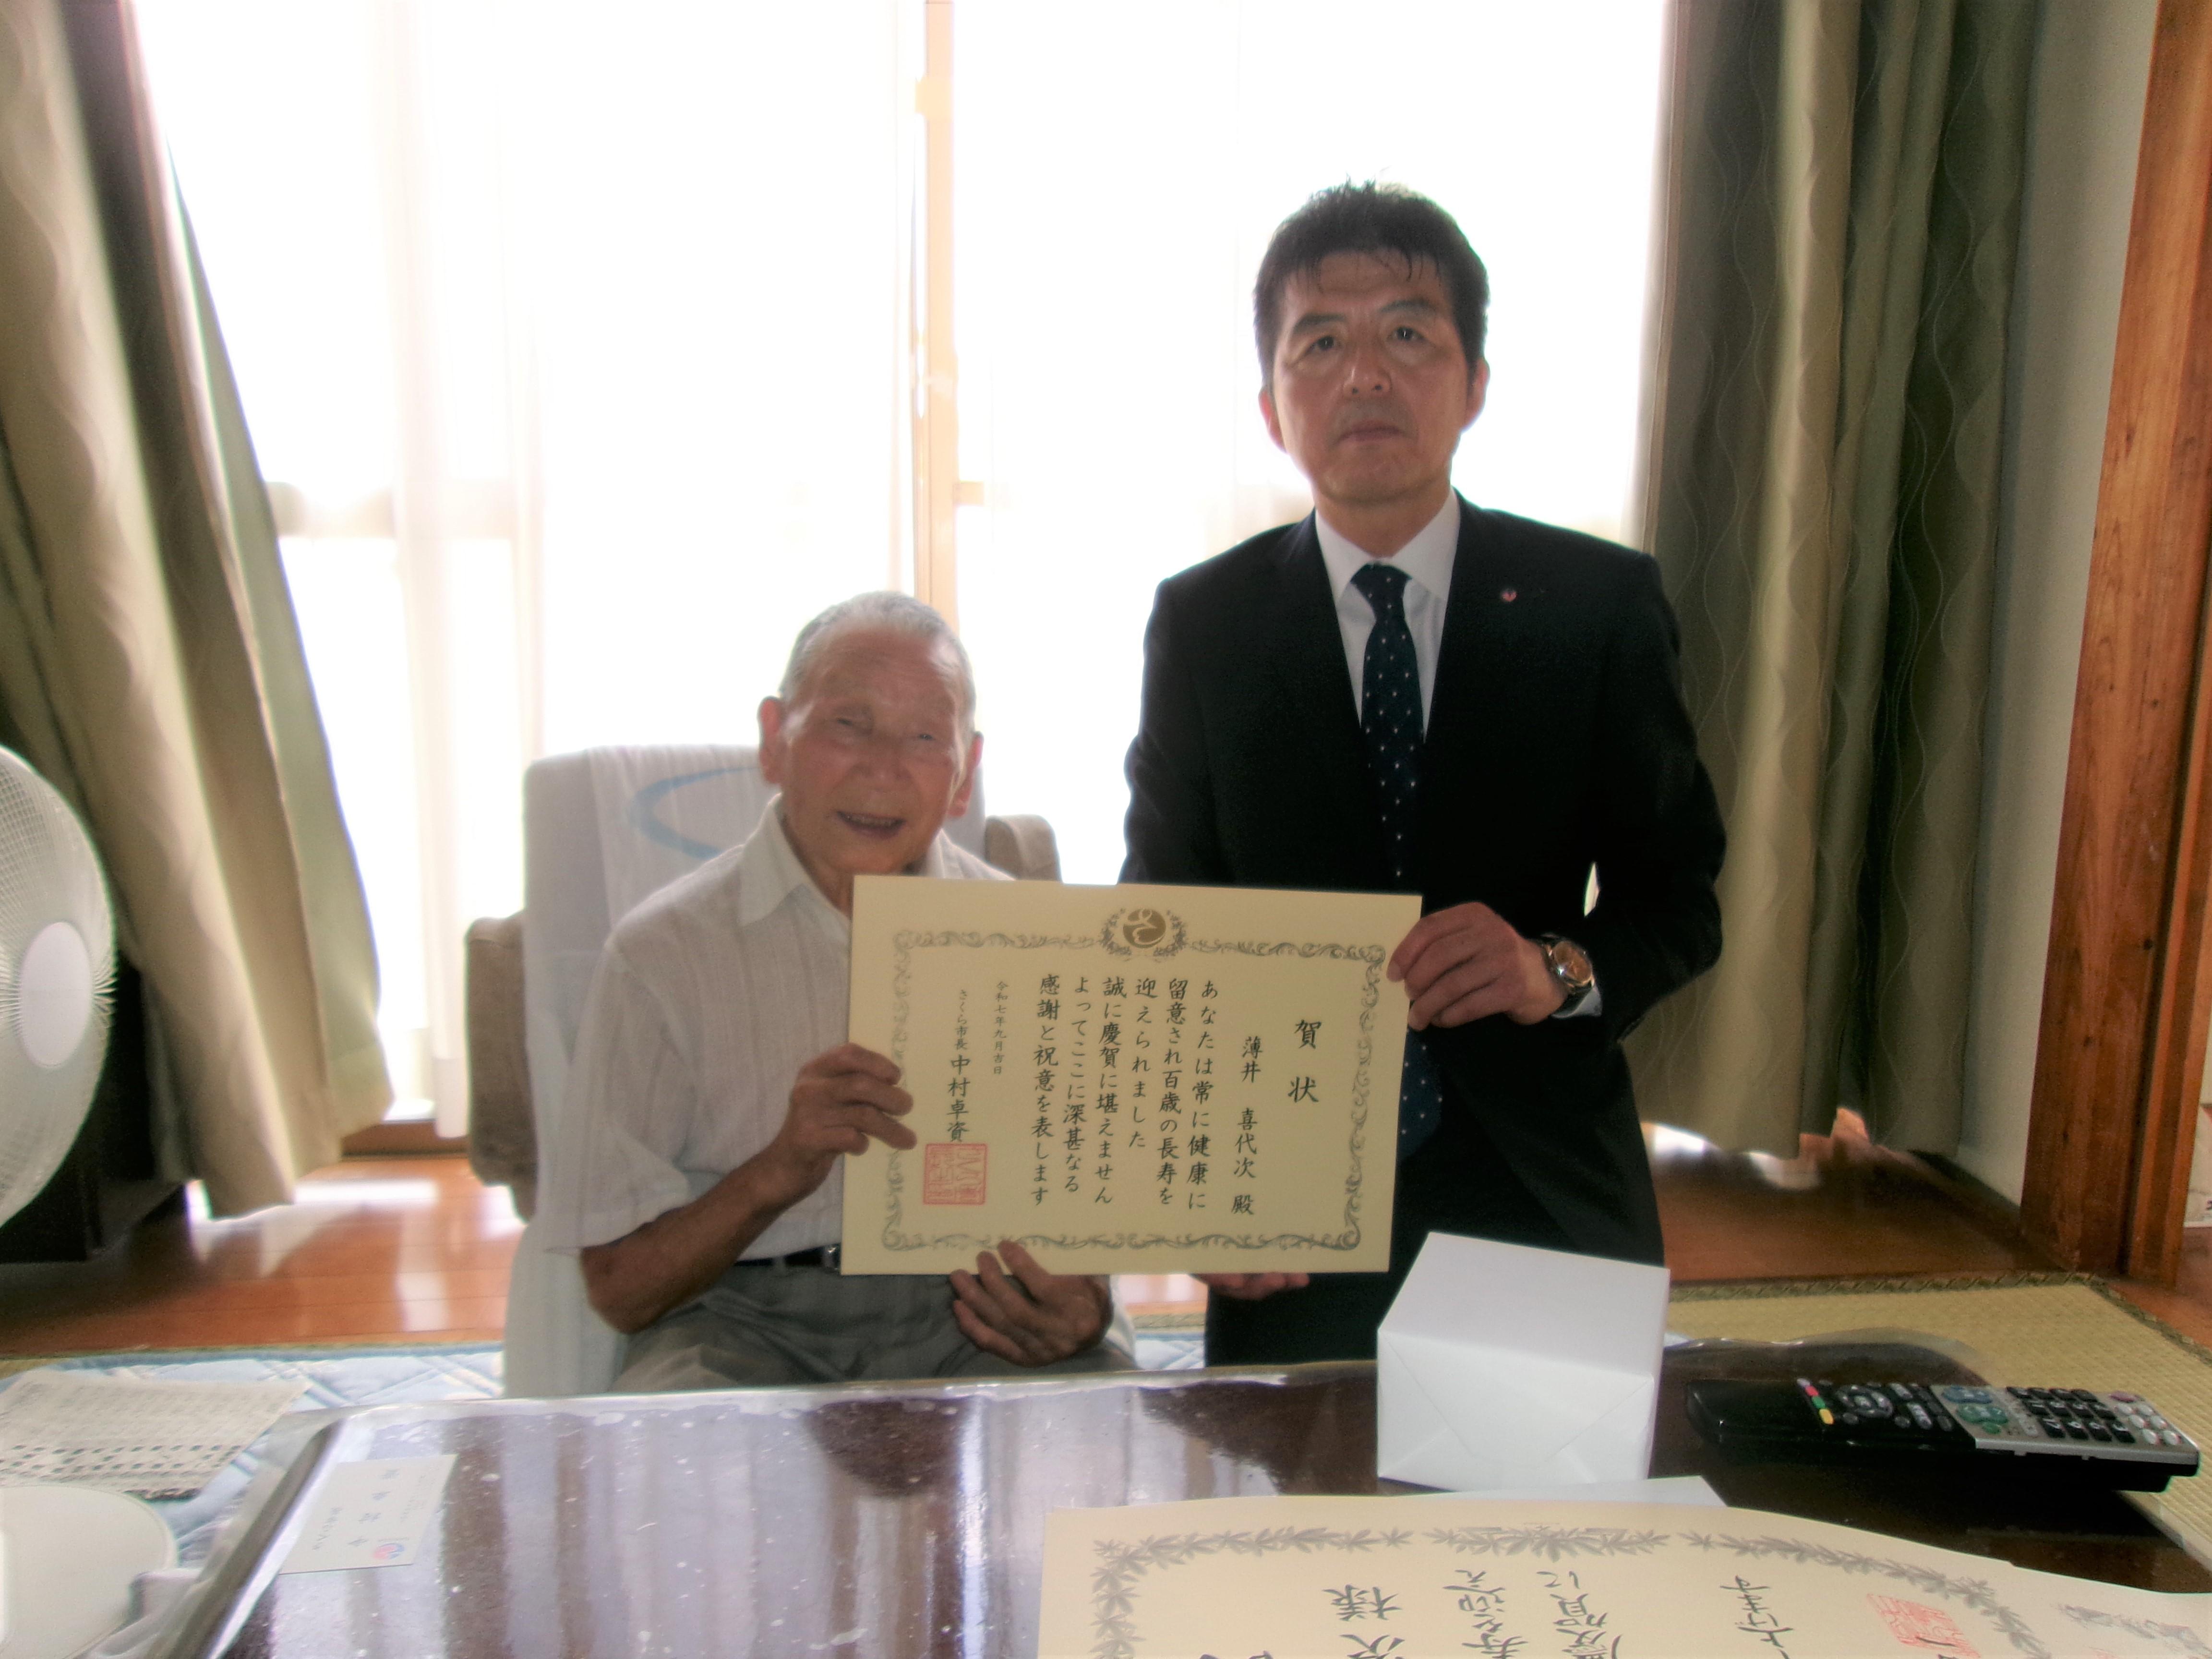 賀状
薄井 喜代次 殿
あなたは常に健康に
留意され百歳の長寿を
迎えられました
誠に慶賀に堪えません
よってここに深甚なる
感謝と祝意を表します
令和七年九月吉日
さくら市長 中村卓資
次様
寿を迎え
慶賀に
上げます